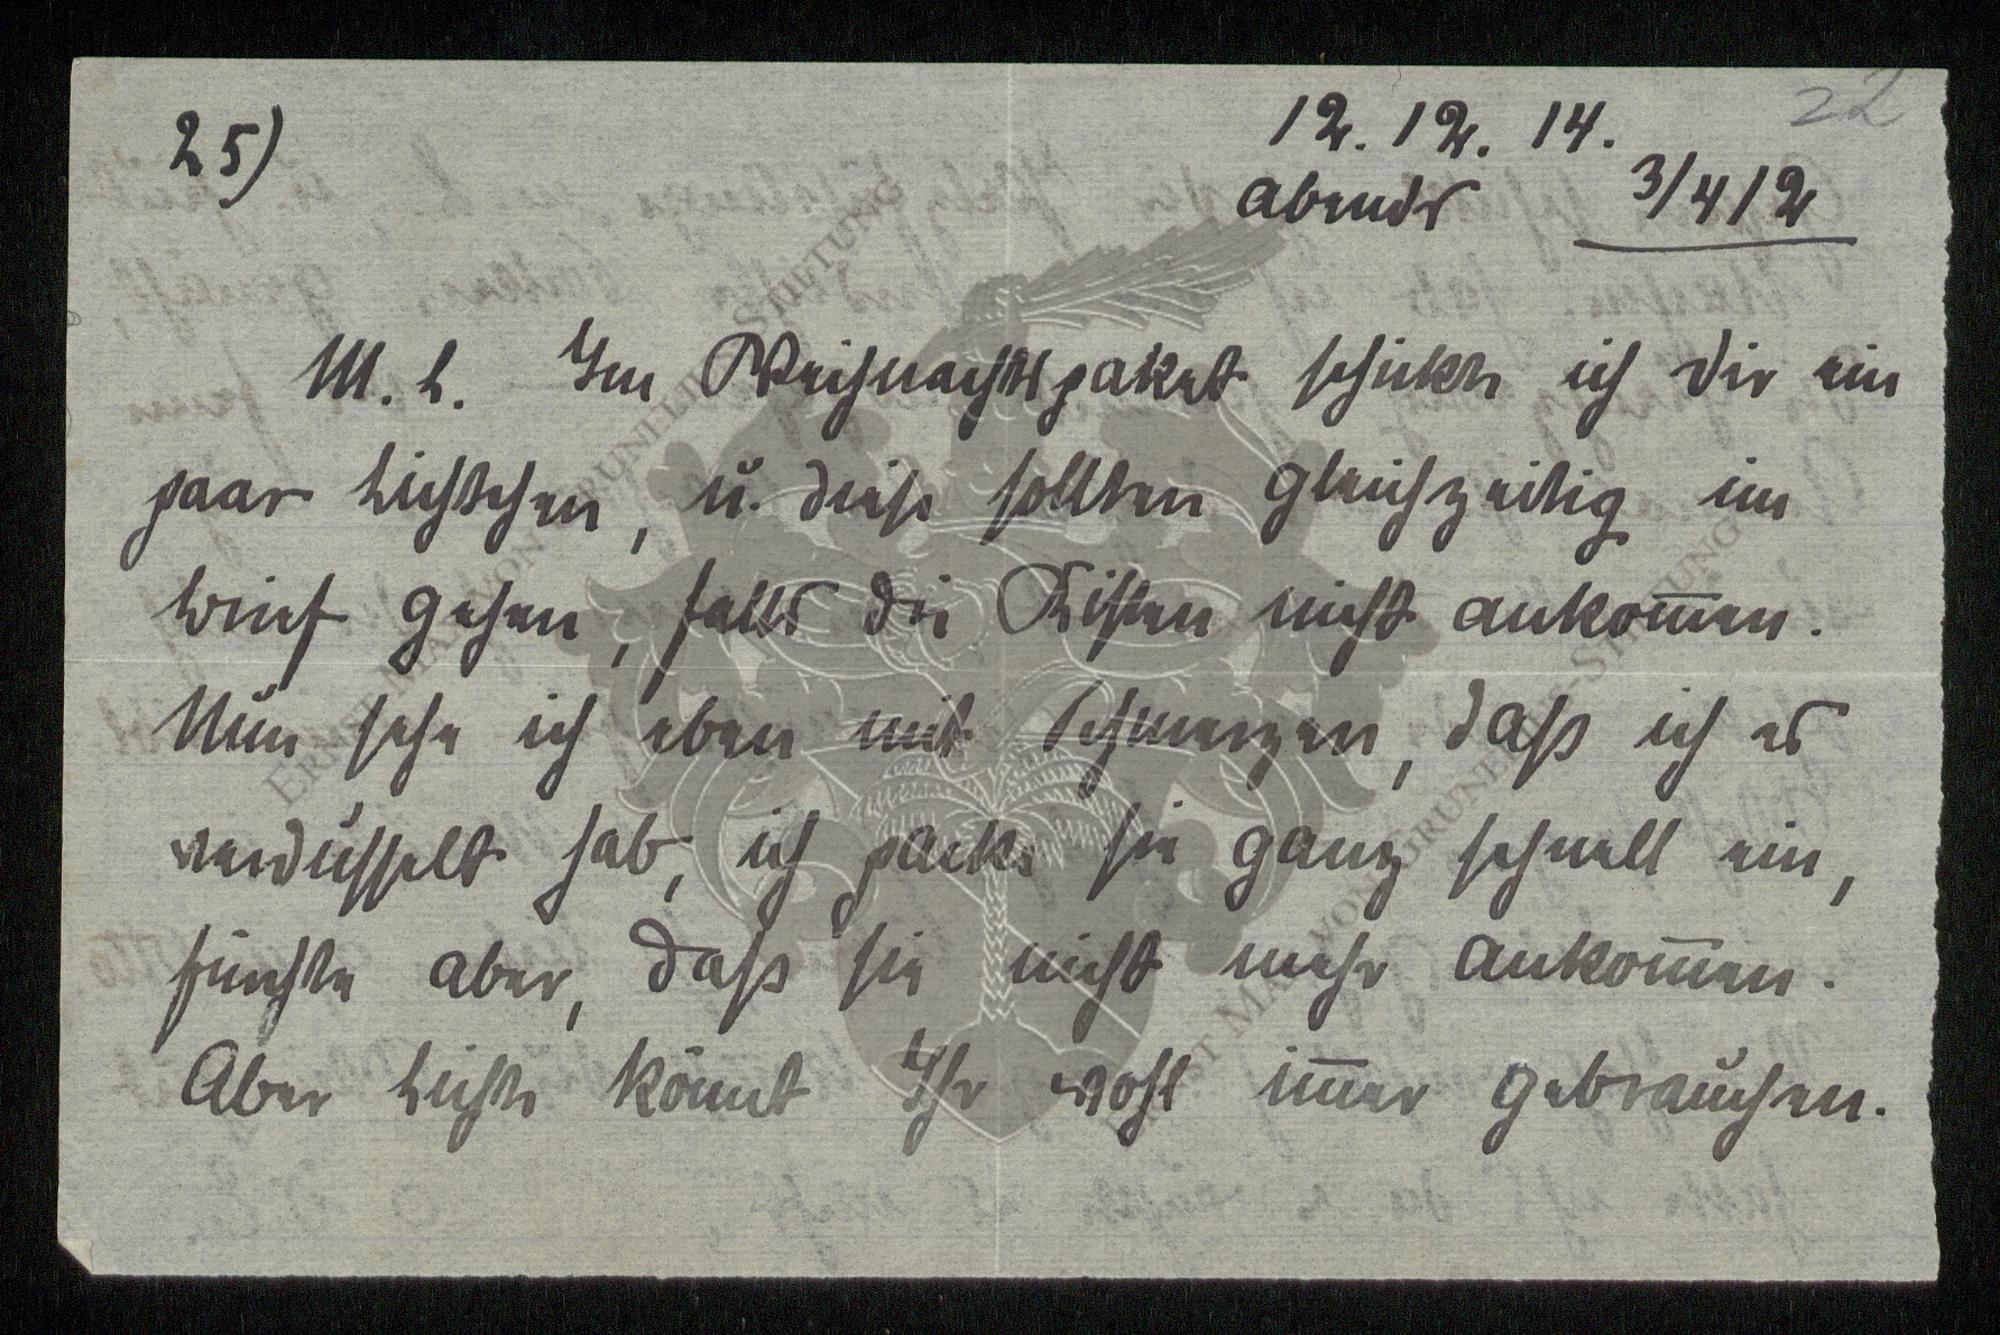 22
25)
12. 12. 14.
abends 3/4 12
M. L. Im Weihnachtspaket schickte ich Dir ein
paar Lichtchen, u. diese sollten gleichzeitig im
brief gehen, falls die Kisten nicht ankom̅en.
Nun sehe ich eben mit Schmerzen, daß ich es
verdusselt hab, ich packe sie ganz schnell ein,
fürchte aber, daß sie nicht mehr ankom̅en.
Aber Lichte könnt Ihr wohl im̅er gebrauchen.
ERNST MAX VON GRUNELIUS-STIFTUNG
ERNST MAX VON GRUNELIUS-STIFTUNG